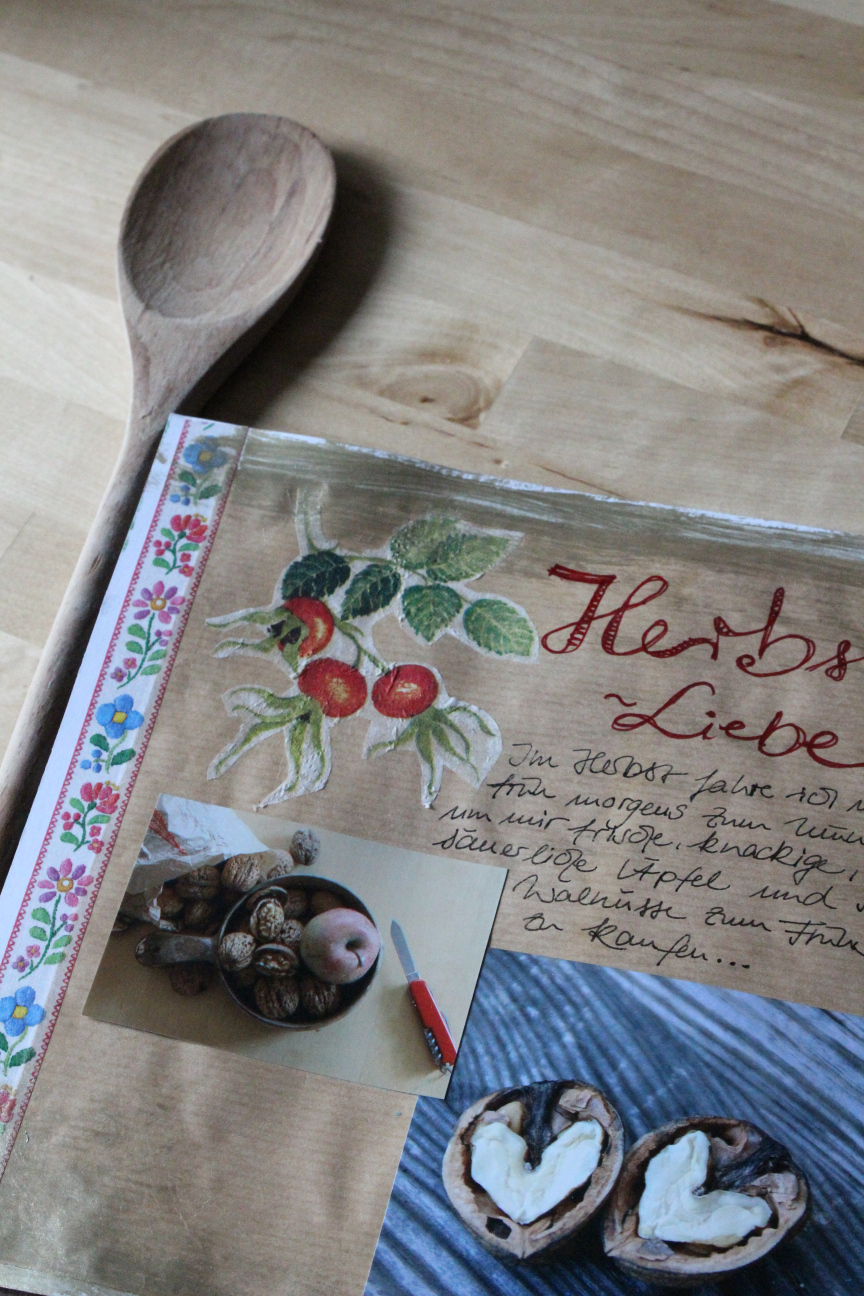 Herbs
~Liebe
Im Herbst fahre ich
früh morgens zum
um mir frische, knackige,
säuerliche Äpfel und
Walnüsse zum Früh
zu kaufen...